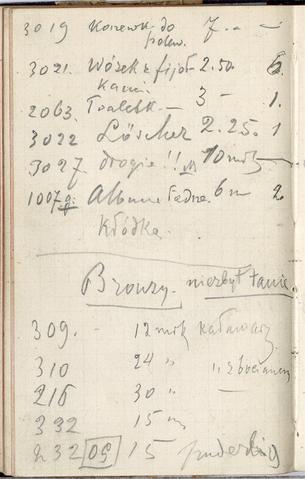 3019 Korewk. do 7.. —
polew.
3021. Wózek z fijoł. 2.50. 6.
kami.
2063. Toaletk. — 3 — 1.
3022 Löscher 2.25. 1
3027 drogie!! 10 mrk —
1007 Album ładne 6 m 2
Kłódka.
Bronzy. niezbyt tanie.
309. - 12 mrk kałamarz
310 24 " " z bocianem
216 30 "
332 15 m
2332 05 15